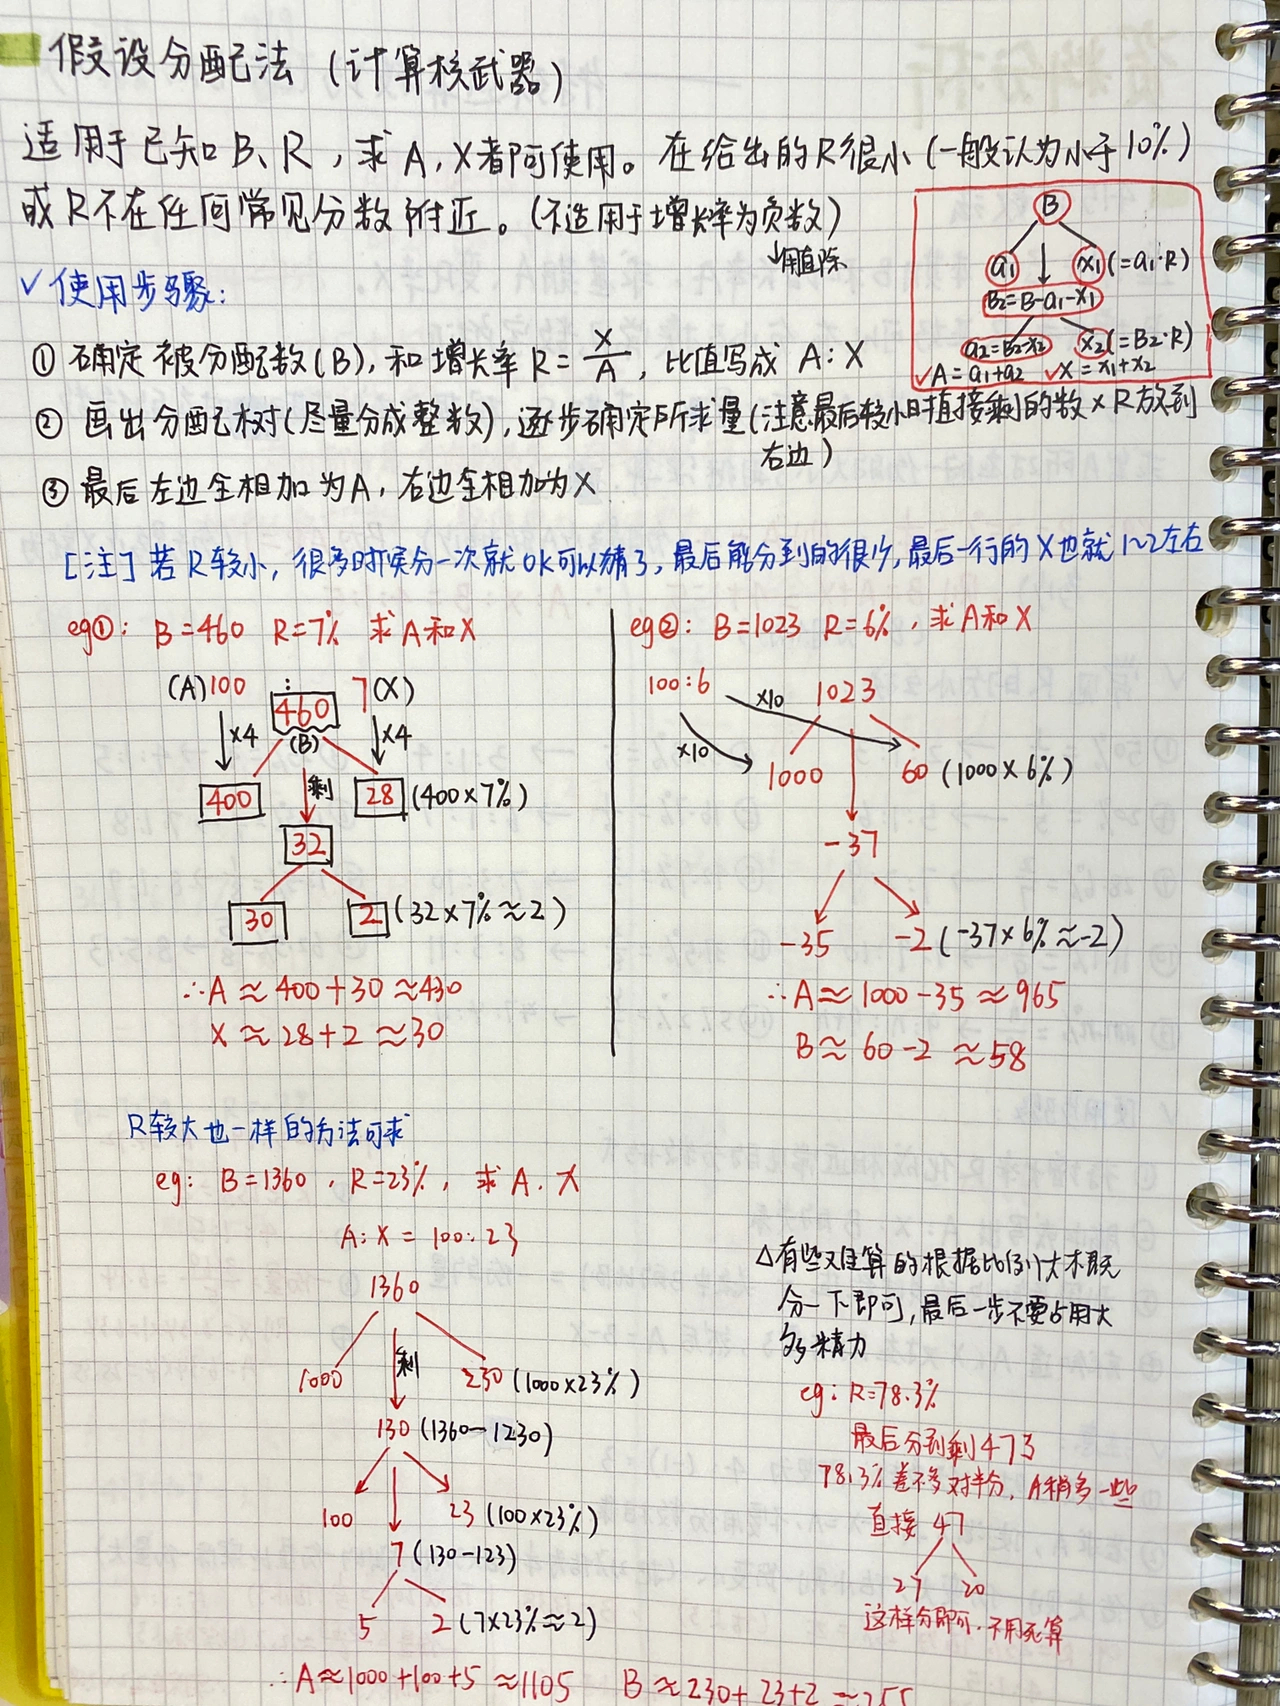 假设分配法 (计算核武器)
适用于已知 B、R，求 A，X者阿使用。在给出的R很小 (一般认为小于10%)
或R不在任何常见分数附近。(不适用于增长率为负数)
↓用直除
B
a₁ x₁(=a₁·R)
B₂=B-a₁-x₁
a₂=B₂-x₂ x₂(=B₂·R)
✓A=a₁+a₂ ✓X=x₁+x₂
✓使用步骤：
① 确定被分配数(B)，和增长率 R=X/A，比值写成 A:X
② 画出分配树(尽量分成整数)，逐步确定所求量(注意最后较小时直接剩的数×R放到
右边)
③ 最后左边全相加为A，右边全相加为X
[注] 若R较小，很多时候分一次就OK可以猜了，最后能分到的很少，最后一行的X也就1~2左右
eg①: B=460 R=7% 求A和X
(A)100 : 7(X)
460
(B)
×4 ×4
400 剩 28 (400×7%)
32
30 2 (32×7%≈2)
∴A≈400+30≈430
X≈28+2≈30
eg②: B=1023 R=6%，求A和X
100:6 ×10 1023
×10
1000 60 (1000×6%)
-37
-35 -2 (-37×6%≈-2)
∴A≈1000-35≈965
B≈60-2≈58
R较大也一样的方法可求
eg: B=1360，R=23%，求A.X
A:X=100:23
1360
1000 剩 230 (1000×23%)
130 (1360-1230)
100 23 (100×23%)
7 (130-123)
5 2 (7×23%≈2)
∴A≈1000+100+5≈1105 B≈230+23+2≈255
△有些难算的根据比例大概
分一下即可，最后一步不要占用太
多精力
eg: R=78.3%
最后分到剩47了
78.3%差不多对半分，A稍多一些
直接 47
27 20
这样分即可，不用死算